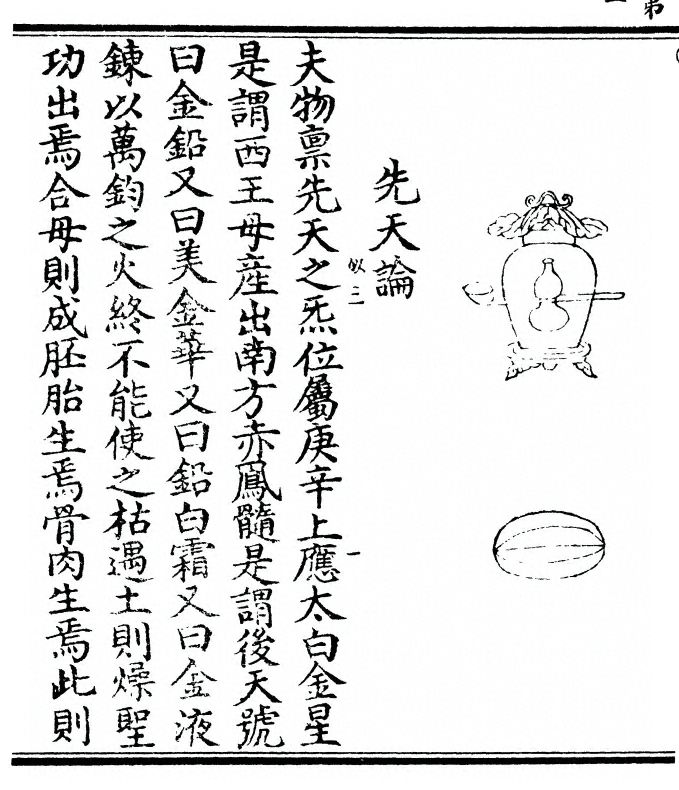 第
先天論
似三
夫物禀先天之炁位屬庚辛上應太白金星
是謂西王母産出南方赤鳳髓是謂後天號
曰金鉛又曰美金華又曰鉛白霜又曰金液
鍊以萬鈞之火終不能使之枯遇土則燥聖
功出焉合母則成胚胎生焉骨肉生焉此則